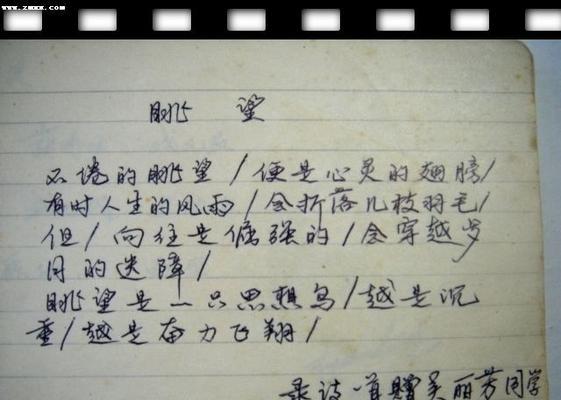 www.zmxx.com
眺 望
不倦的眺望/便是心灵的翅膀/
有时人生的风雨/会折落几枝羽毛/
但/向往是倔强的/会穿越岁
月的迷障/
眺望是一只思想鸟/越是沉
重/越是奋力飞翔/
录诗一首赠吴丽芳同学